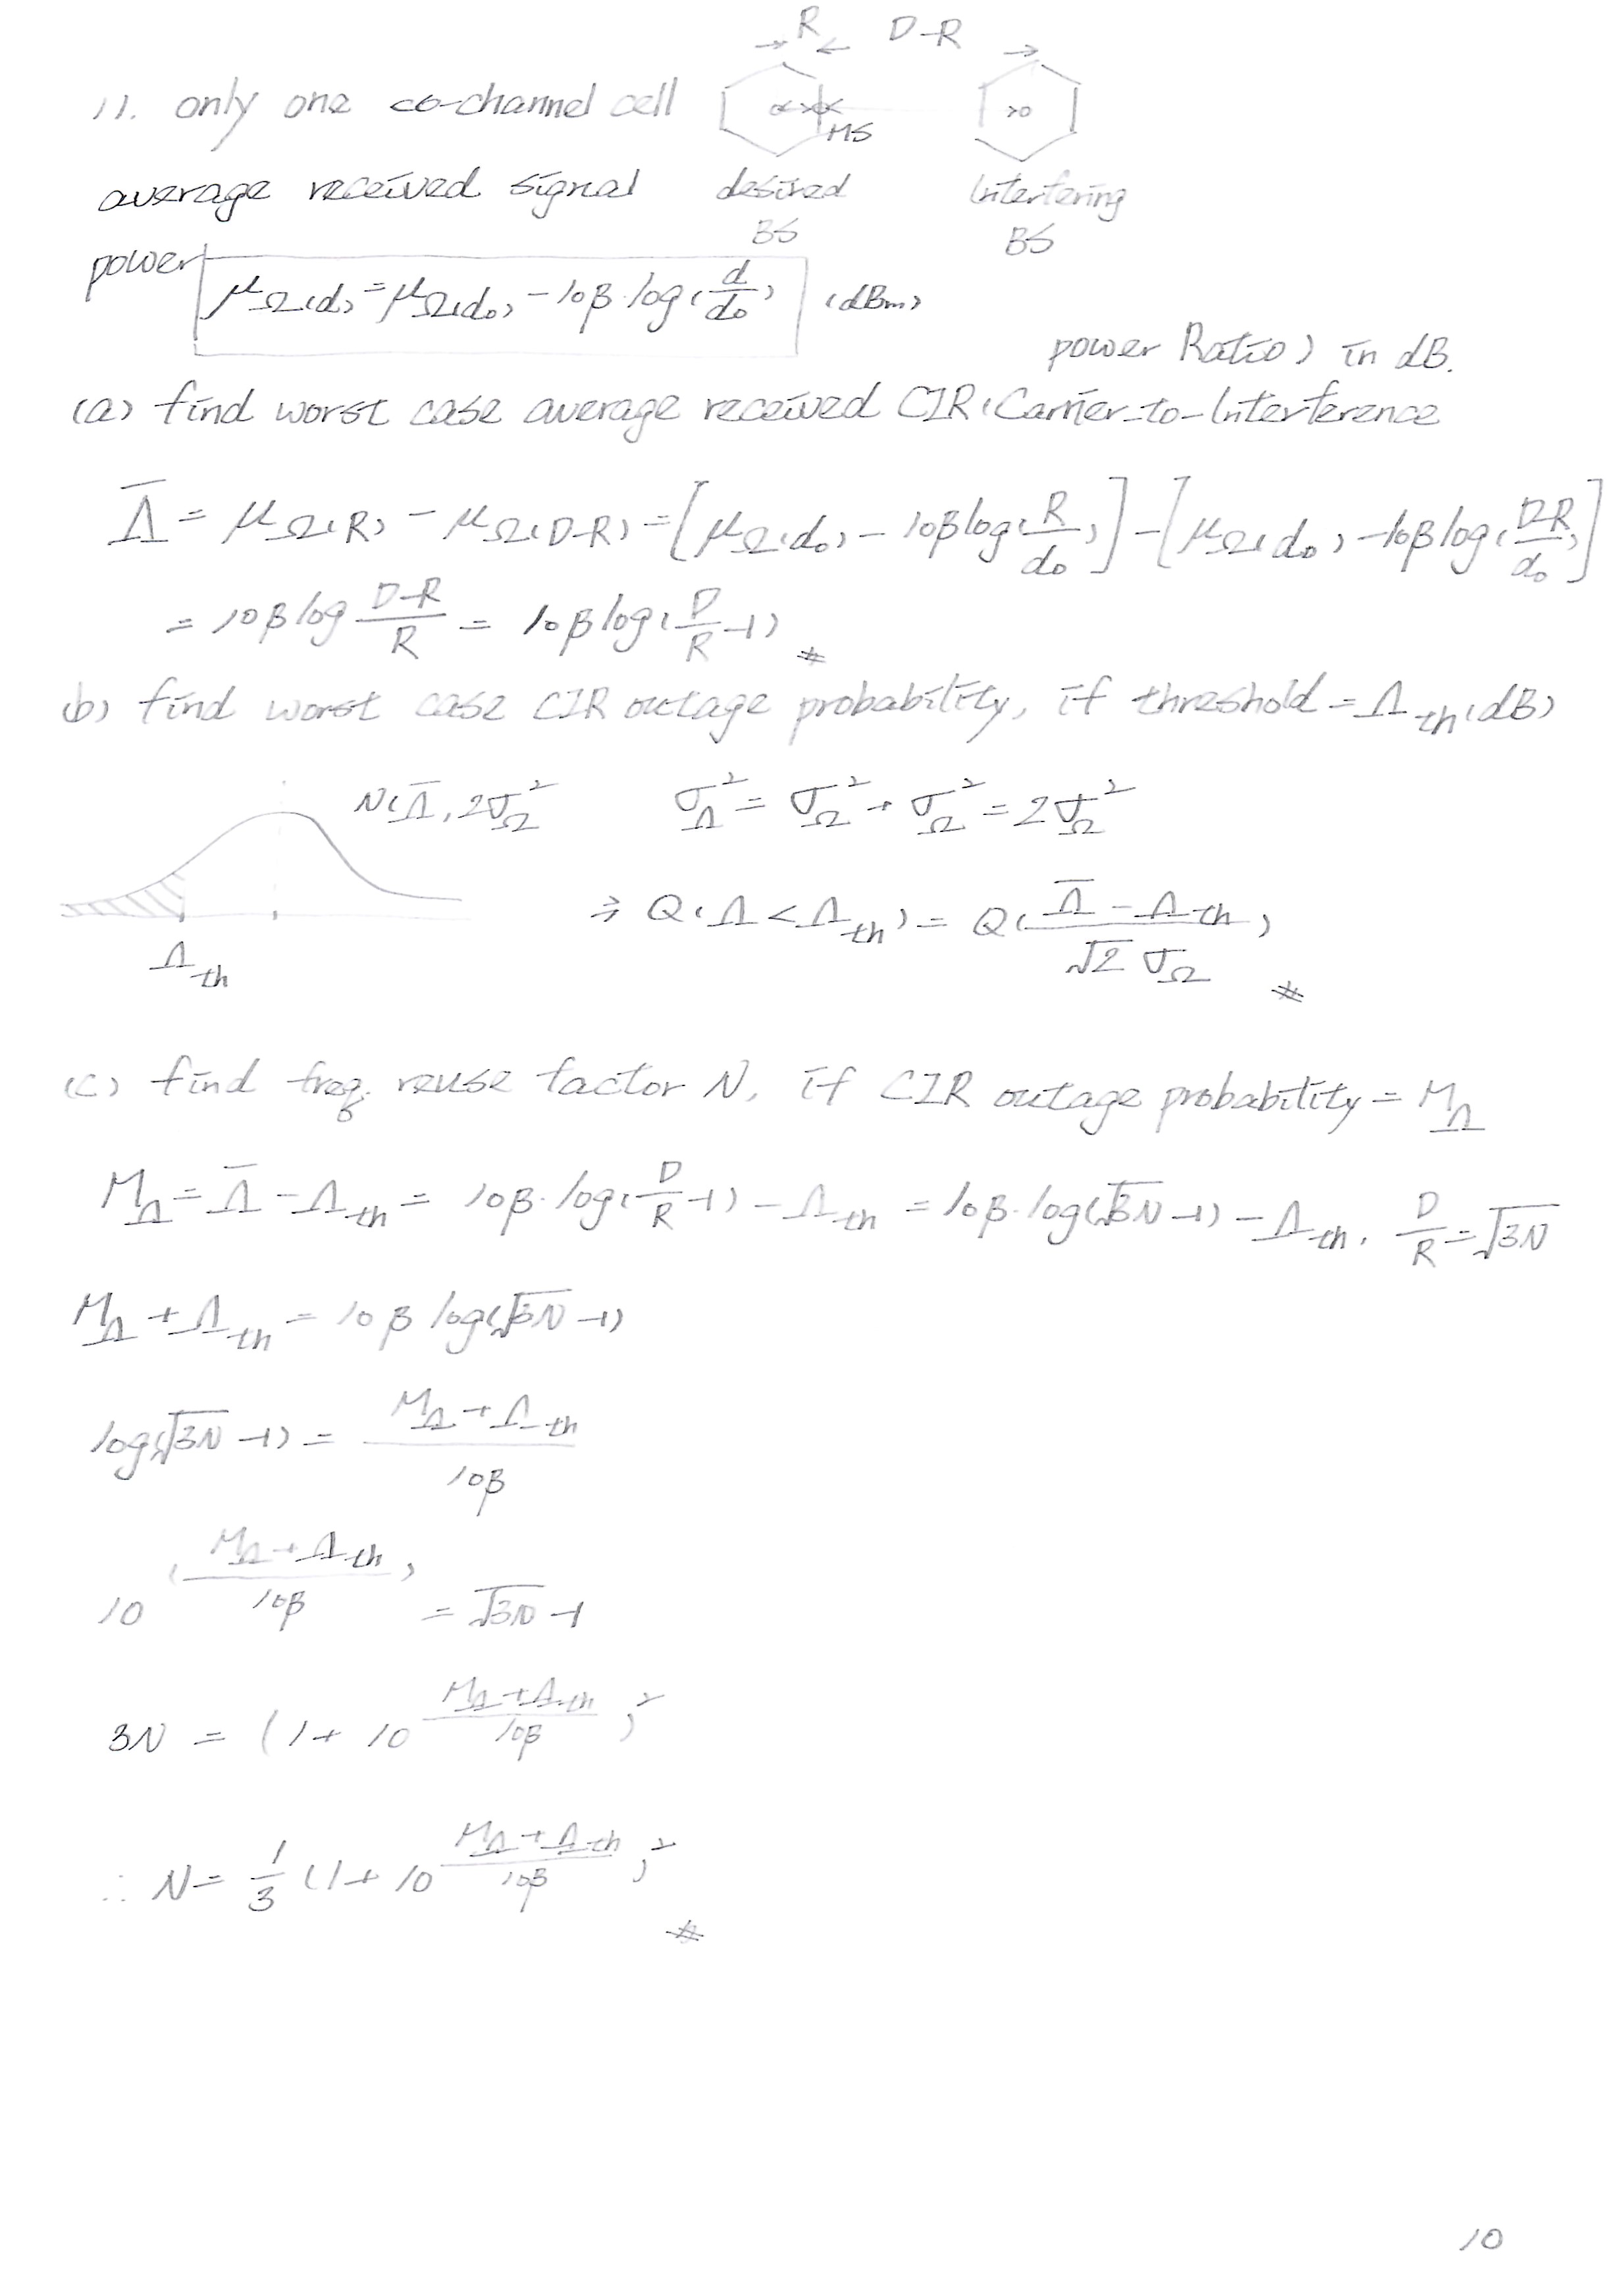 R D-R
11. only one co-channel cell
MS
average received signal desired Interfering
BS BS
power μ_Ω(d) = μ_Ω(d₀) - 10β·log(d/d₀) (dBm)
power Ratio) in dB.
(a) find worst case average received CIR(Carrier-to-Interference
Λ̅ = μ_Ω(R) - μ_Ω(D-R) = [μ_Ω(d₀) - 10βlog(R/d₀)] - [μ_Ω(d₀) - 10βlog(D-R/d₀)]
= 10βlog D-R/R = 10βlog(D/R -1) #
(b) find worst case CIR outage probability, if threshold = Λ_th(dB)
N(Λ̅, 2σ_Ω² σ_Λ² = σ_Ω² + σ_Ω² = 2σ_Ω²
⇒ Q(Λ < Λ_th) = Q(Λ̅ - Λ_th / √2 σ_Ω) #
Λ_th
(c) find freq. reuse factor N, if CIR outage probability = M_Λ
M_Λ = Λ̅ - Λ_th = 10β·log(D/R -1) - Λ_th = 10β·log(√3N -1) - Λ_th. D/R = √3N
M_Λ + Λ_th = 10β log(√3N -1)
log(√3N -1) = M_Λ + Λ_th / 10β
10^(M_Λ + Λ_th / 10β) = √3N -1
3N = (1 + 10^(M_Λ + Λ_th / 10β))²
∴ N = 1/3 (1 + 10^(M_Λ + Λ_th / 10β))² #
10